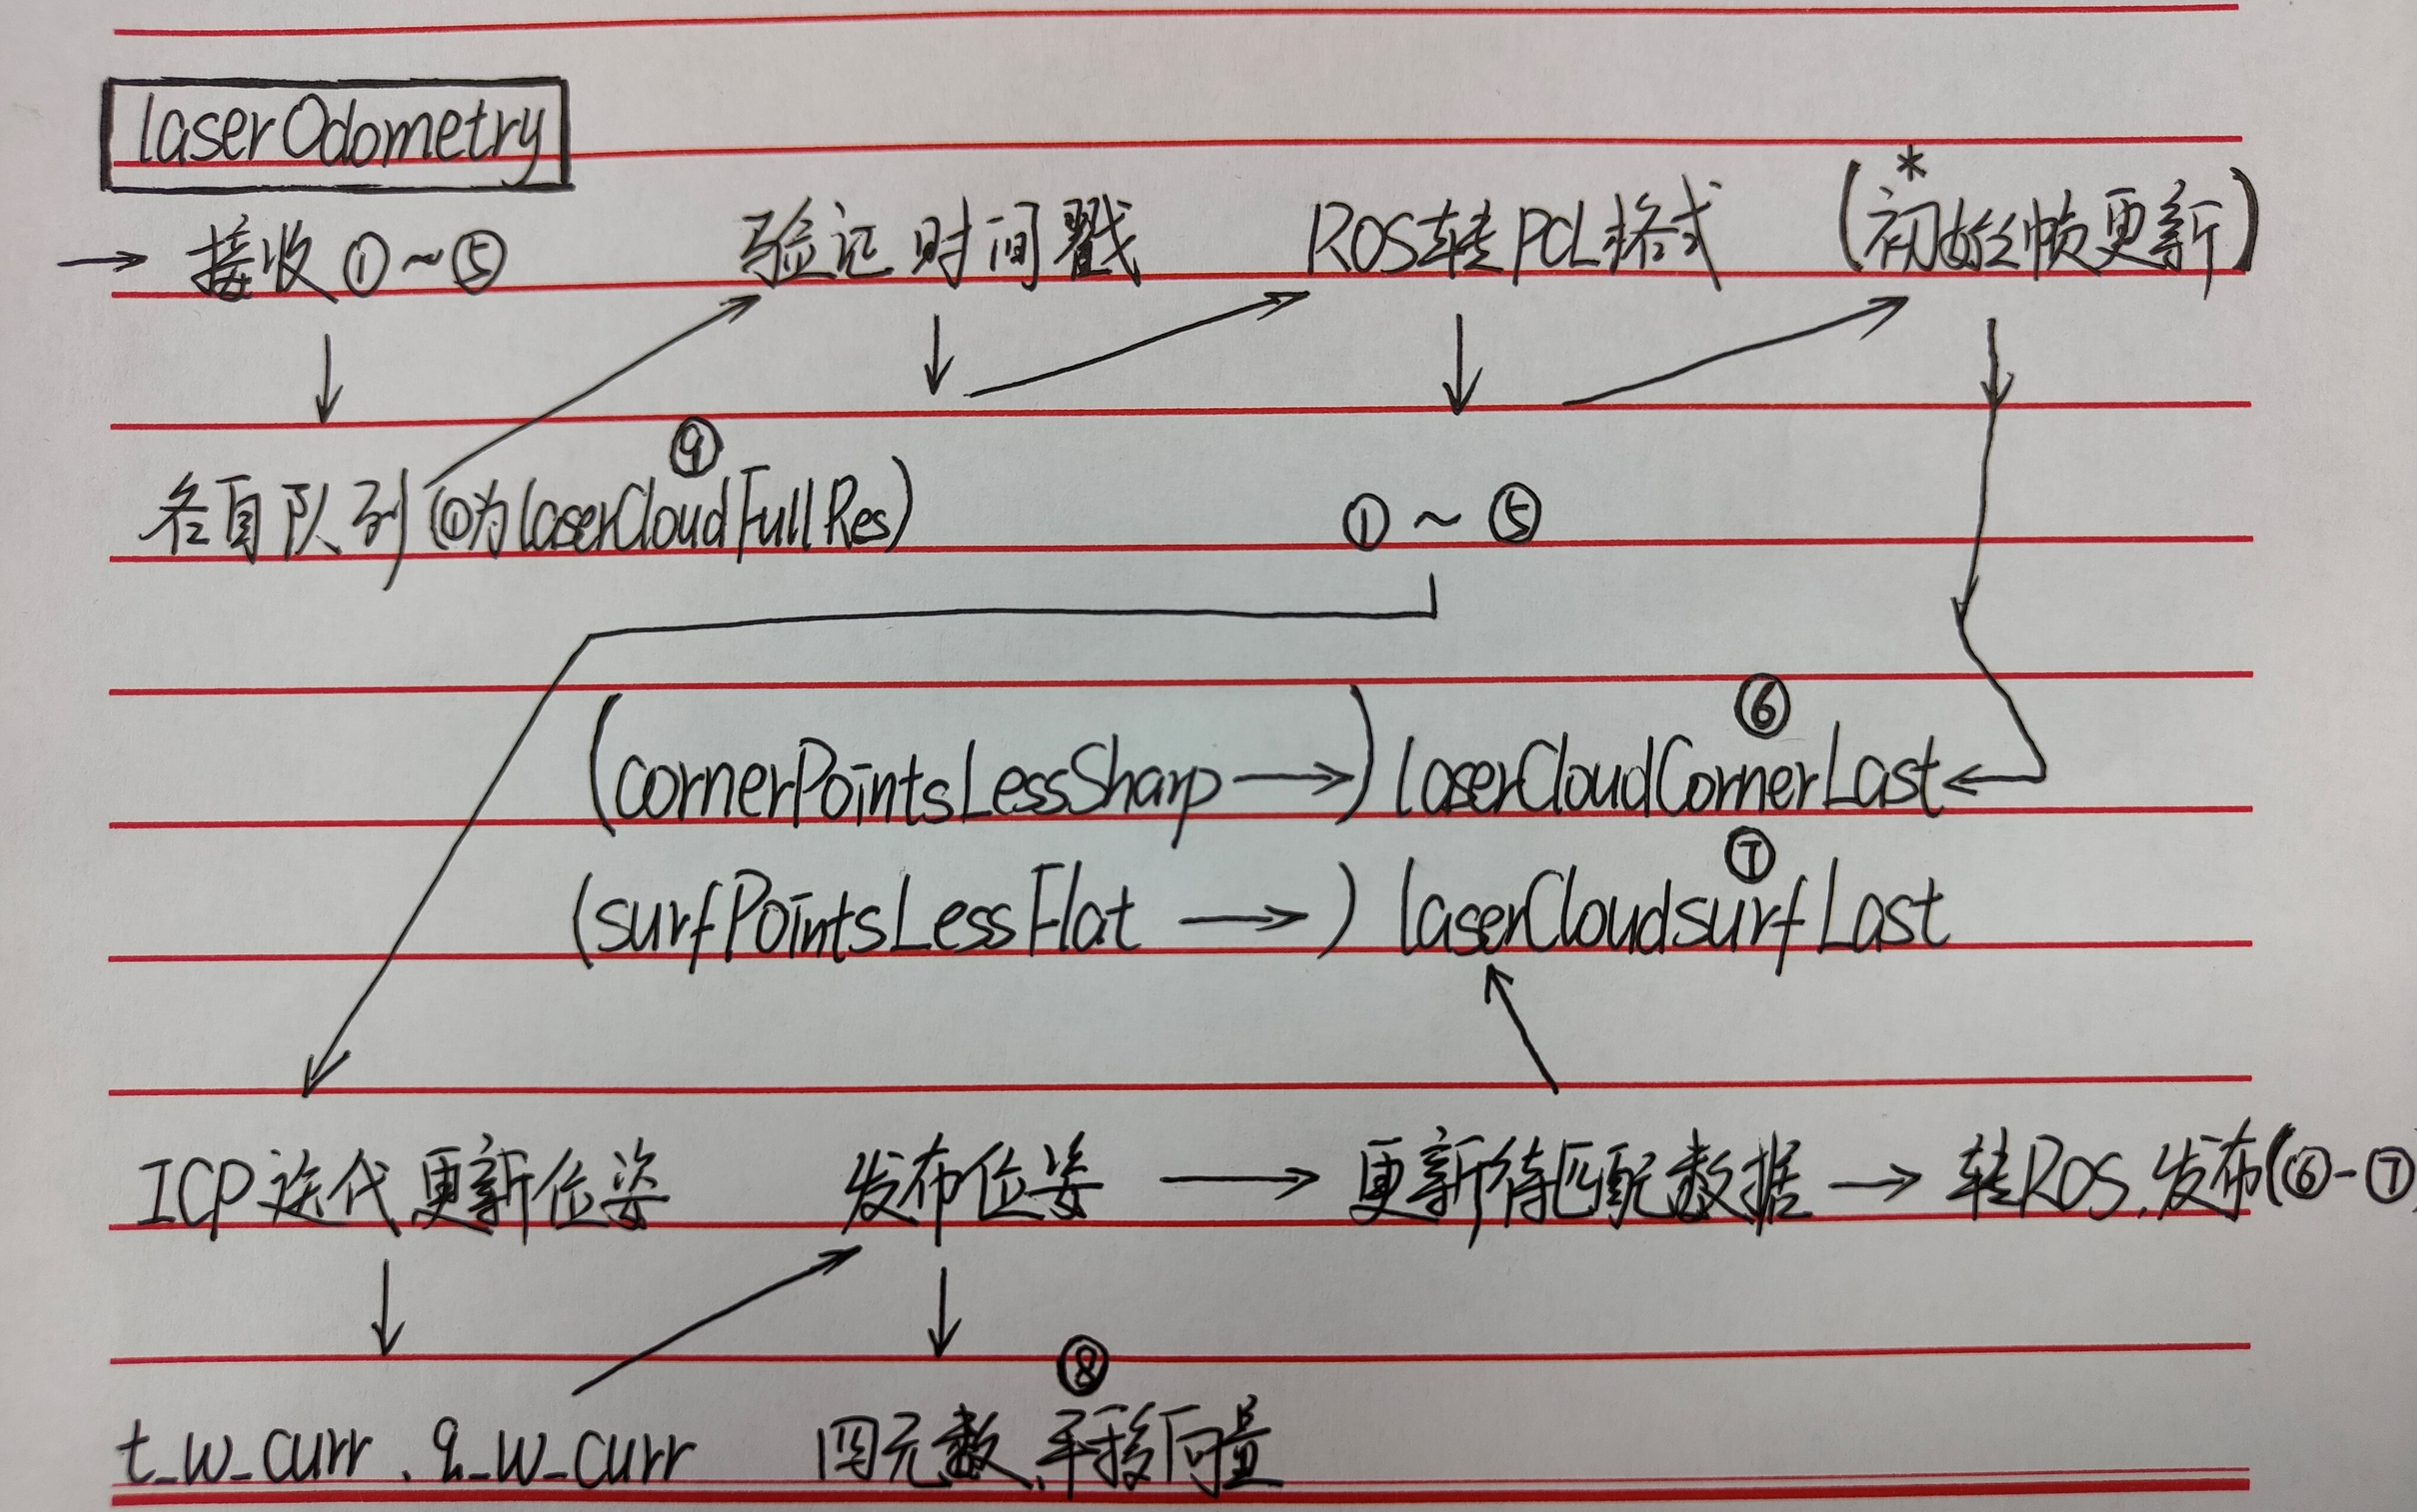 laserOdometry
→ 接收①~⑤ 验证时间戳 ROS转PCL格式 (初始帧更新)*
各自队列 (①为laserCloudFullRes) ⑨ ①~⑤
(cornerPointsLessSharp→) laserCloudCornerLast ⑥
(surfPointsLessFlat →) laserCloudsurfLast ⑦
ICP迭代更新位姿 发布位姿 → 更新待匹配数据 → 转ROS.发布(⑥-⑦)
t_w_curr、q_w_curr 四元数、平移向量 ⑧